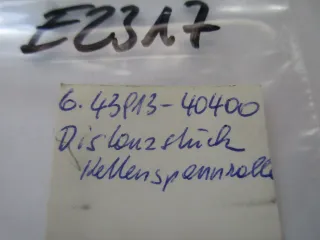 E2317
6.43913-40400
Distanzstück
Kettenspannrolle